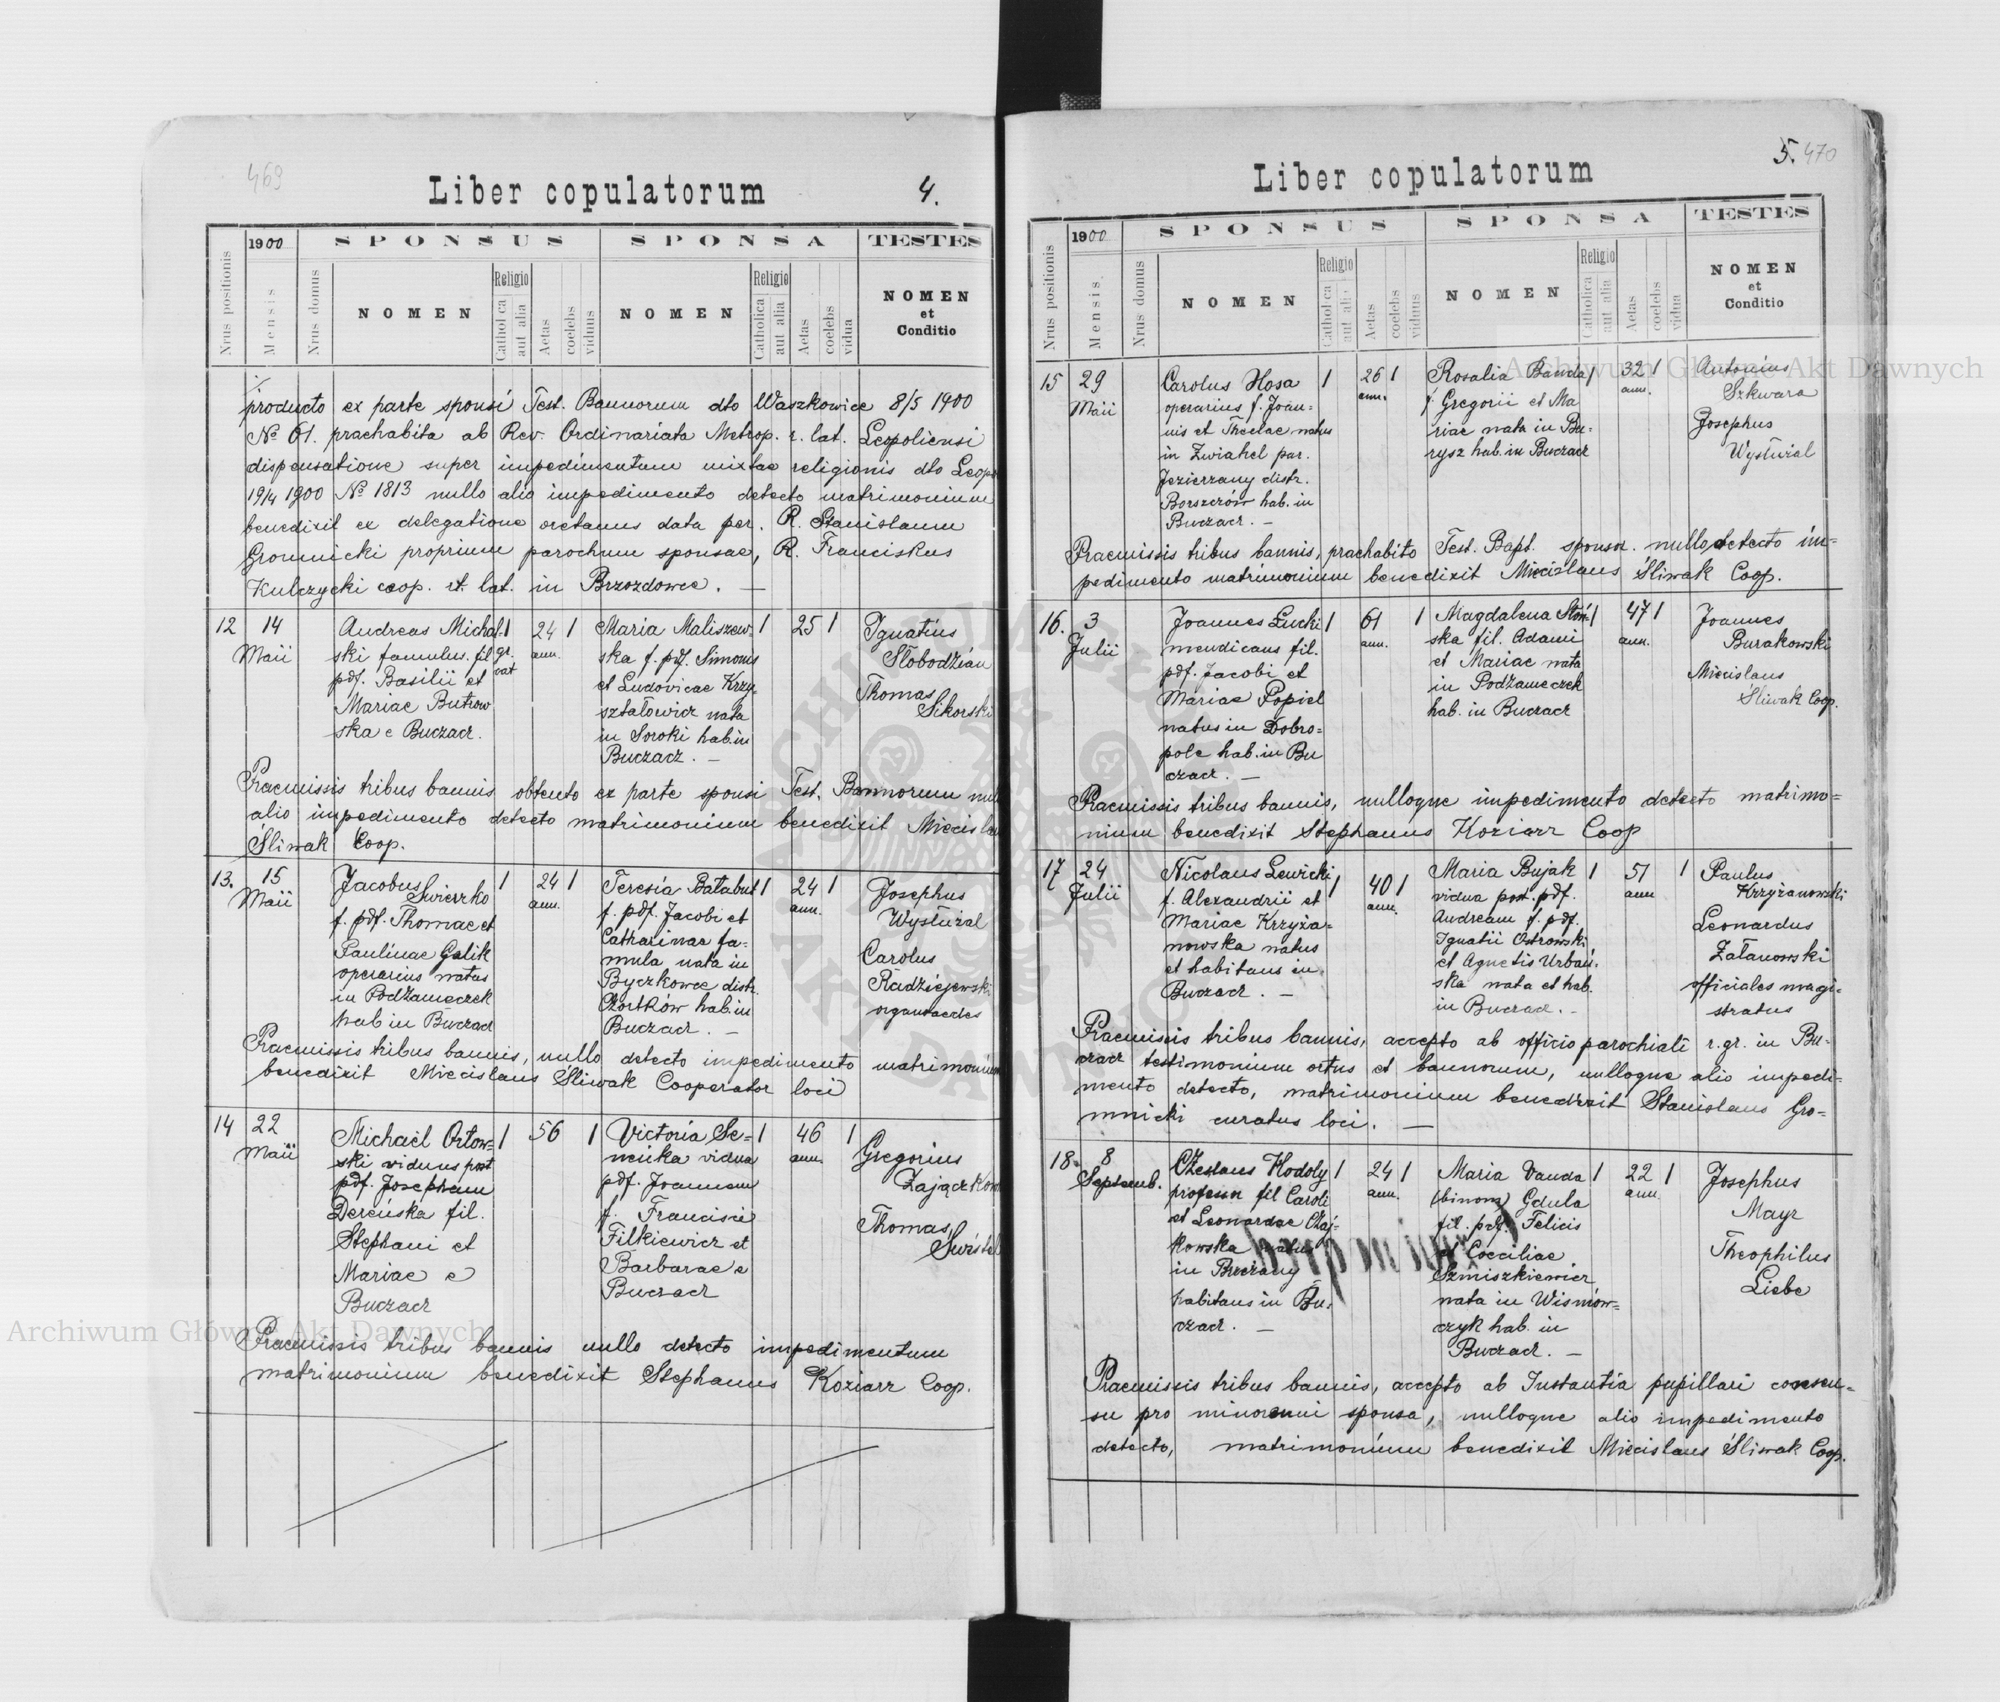 469
Liber copulatorum
4.
Nrus positionis
1900
Mensis
Nrus domus
SPONSUS
NOMEN
Religio
Catholica
aut alia
Aetas
coelebs
viduus
SPONSA
NOMEN
Religio
Catholica
aut alia
Aetas
coelebs
vidua
TESTES
NOMEN
et
Conditio
producto ex parte sponsi Test. Bannorum dto Waszkowice 8/5 1900
No 61. praehabita ab Rev. Ordinariata Metrop. r. lat. Leopoliensi
dispensatione super impedimentum mixtae religionis dto Leopo
19/4 1900 No 1813 nullo alio impedimento detecto matrimonium
benedixit ex delegatione oretenus data per. R. Stanislaum
Gromnicki proprium parochum sponsae, R. Franciskus
Kulczycki coop. rt. lat. in Brzozdowce. —
12
14
Maii
Andreas Michal-
ski famulus. fil
pdf. Basilii et
Mariae Butrow
ska e Buczacz.
1
gr.
cat
24
ann.
1
Maria Maliszew-
ska f. pdf. Simonis
et Ludovicae Krzy-
ształowicz nata
in Soroki hab. in
Buczacz. —
1
25
1
Ignatius
Słobodzian
Thomas
Sikorski
Praemissis tribus bannis obtento ex parte sponsi Test. Bannorum null
alio impedimento detecto matrimonium benedixit Miecisla
Śliwak Coop.
13.
15
Maii
Jacobus
Swierzko
f. pdf. Thomae et
Paulinae Galik
operarius natus
in Podzameczek
hab in Buczacz
1
24
ann.
1
Teresia Batabut
f. pdf. Jacobi et
Catharinae fa-
mula nata in
Byczkowce distr.
Czortków hab. in
Buczacz. —
1
24
ann.
1
Josephus
Wystużal
Carolus
Radziejewski
organaedes
Praemissis tribus bannis, nullo detecto impedimento matrimonium
benedixit Miecislaus Śliwak Cooperator loci
14
22
Maii
Michaël Ortow-
ski viduus post
pdf. Josepham
Dereńska fil.
Stephani et
Mariae e
Buczacz
1
56
1
Victoria Se-
neńka vidua
pdf. Joannem
f. Francisci
Filkiewicz et
Barbarae e
Buczacz
1
46
ann.
1
Gregorius
Zajączkows
Thomas
Świstel
Praemissis tribus bannis nullo detecto impedimentum
matrimonium benedixit Stephanus Koziarz Coop.
5. 470
Liber copulatorum
Nrus positionis
1900
Mensis.
Nrus domus
SPONSUS
NOMEN
Religio
Catholica
aut alia
Aetas
coelebs
viduus
SPONSA
NOMEN
Religio
Catholica
aut alia
Aetas
coelebs
vidua
TESTES
NOMEN
et
Conditio
15
29
Maii
Carolus Hosa
operarius f. Joan-
nis et Theclae natus
in Zwiahel par.
Jezierzany distr.
Borszczów hab. in
Buczacz. —
1
26
ann.
1
Rosalia Banda
f. Gregorii et Ma
riae nata in Bu-
rysz hab. in Buczacz
1
32
ann.
1
Antonius
Szkwara
Josephus
Wystużal
Praemissis tribus bannis, praehabito Test. Bapt. sponsa. nullo detecto im-
pedimento matrimonium benedixit Miecislaus Śliwak Coop.
16.
3
Julii
Joannes Lucki
mendicans fil.
pdf. Jacobi et
Mariae Popiel
natus in Dobro-
pole hab. in Bu
czacz. —
1
61
ann.
1
Magdalena Słoń-
ska fil. Adami
et Mariae nata
in Podzameczek
hab. in Buczacz
1
47
ann.
1
Joannes
Burakowski
Miecislaus
Śliwak Coop.
Praemissis tribus bannis, nulloque impedimento detecto matrimo-
nium benedixit Stephanus Koziarz Coop
17
24
Julii
Nicolaus Lewicki
f. Alexandrii et
Mariae Krzyża-
nowska natus
et habitans in
Buczacz. —
1
40
ann.
1
Maria Bujak
vidua post. pdf.
Andream f. pdf.
Ignatii Ostrowski
et Agnetis Urbań-
ska nata et hab.
in Buczacz. —
1
51
ann
1
Paulus
Krzyżanowski
Leonardus
Załanowski
officiales magi-
stratus
Praemissis tribus bannis, accepto ab officio parochiali r. gr. in Bu-
czacz testimonium ortus et bannorum, nulloque alio impedi-
mento detecto, matrimonium benedixit Stanislaus Gro-
mnicki curatus loci. —
18.
8
Septemb.
Czeslaus Kodoly
professor fil Caroli
et Leonardae Czaj-
kowska natus
in Brzeżany
habitans in Bu-
czacz. —
1
24
ann.
1
Maria Vanda
(binom) Gdula
fil. pdf. Felicis
et Coeciliae
Szmiszkiewicz
nata in Wisniow-
czyk hab. in
Buczacz. —
1
22
ann.
1
Josephus
Mayr
Theophilus
Liebe
Praemissis tribus bannis, accepto ab Instantia pupillari consen-
su pro minorenni sponsa, nulloque alio impedimento
detecto, matrimonium benedixit Miecislaus Śliwak Coop.
Archiwum Główne Akt Dawnych
Archiwum Główne Akt Dawnych